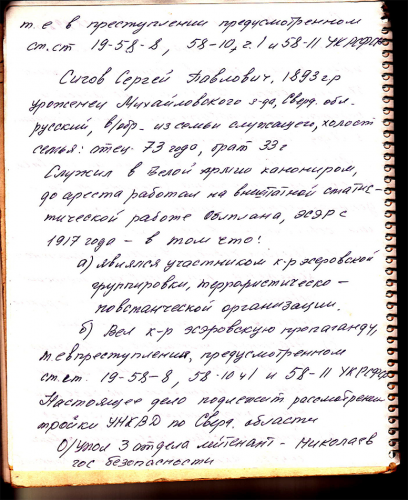 т.е в преступлении предусмотренном
ст.ст 19-58-8, 58-10, ч.1 и 58-11 УКРСФСР
Сигов Сергей Павлович, 1893 г р
уроженец Михайловского з-да, Сверд. обл.
русский, в/обр. из семьи служащего, холост
семья: отец 73 года, брат 33 г
Служил в белой армии канониром,
до ареста работал на внештатной статис-
тической работе Облплана, эсэр с
1917 года - в том что:
а) являлся участником к-р эсеровской
группировки, террористическо -
повстанческой организации.
б) Вел к-р эсэровскую пропаганду,
т.е в преступлениях, предусмотренном
ст.ст. 19-58-8, 58-10 ч1 и 58-11 УКРСФСР
Настоящее дело подлежит рассмотрению
тройки УНКВД по Сверд. области
О/Упол 3 отдела лейтенант - Николаев
гос безопасности